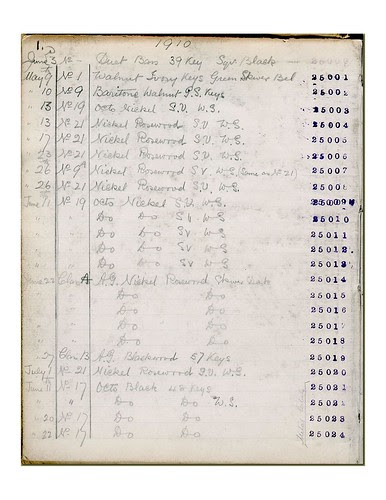 1.
1910
June 3 No — Duet Bass 39 Key Sqr Black —
May 9 No 1 Walnut Ivory Keys Green Bel 25001
" 10 No 9 Baritone Walnut P.S. Keys 25002
" 13 No 19 Octo Nickel S.V. W.S. 25003
" 13 No 21 Nickel Rosewood S.V. W.S. 25004
" 17 No 21 Nickel Rosewood S.V. W.S. 25005
" 23 No 21 Nickel Rosewood S.V. W.S. 25006
" 26 No 9 Nickel Rosewood S.V. W.S. (Same as No 21) 25007
" 26 No 21 Nickel Rosewood S.V. W.S. 25008
June 11 No 19 Octo Nickel S.V. W.S. 25009
" " Do Do S.V. W.S 25010
" " Do Do S.V W.S 25011
" " Do Do S.V W.S 25012
" " Do Do S.V W.S 25013
June 22 Class A A.G. Nickel Rosewood 25014
" " Do Do 25015
" " Do Do 25016
" " Do Do 25017
" " Do Do 25018
" 27 Class B A.G. Blackwood 57 Keys 25019
July 1 No 21 Nickel Rosewood S.V. W.S. 25020
June 11 No 17 Octo Black 48 Keys 25021
" " Do Do W.S. 25022
" 20 No 17 Do Do 25023
" 22 No 17 Do Do 25024